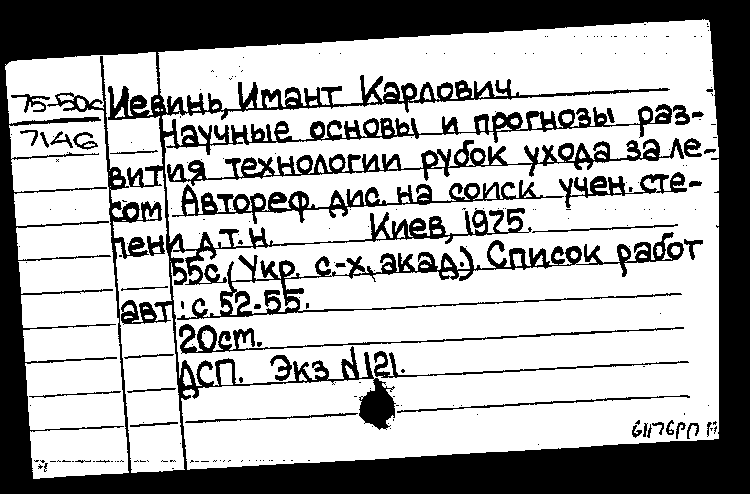 75-50с Иевинь, Имант Карлович.
7146 Научные основы и прогнозы раз-
вития технологии рубок ухода за ле-
сом Автореф. дис. на соиск. учен. сте-
пени д.т.н. Киев, 1975.
55с. (Укр. с.-х. акад.). Список работ
авт.: с. 52-55.
20ст.
ДСП. Экз N 121.